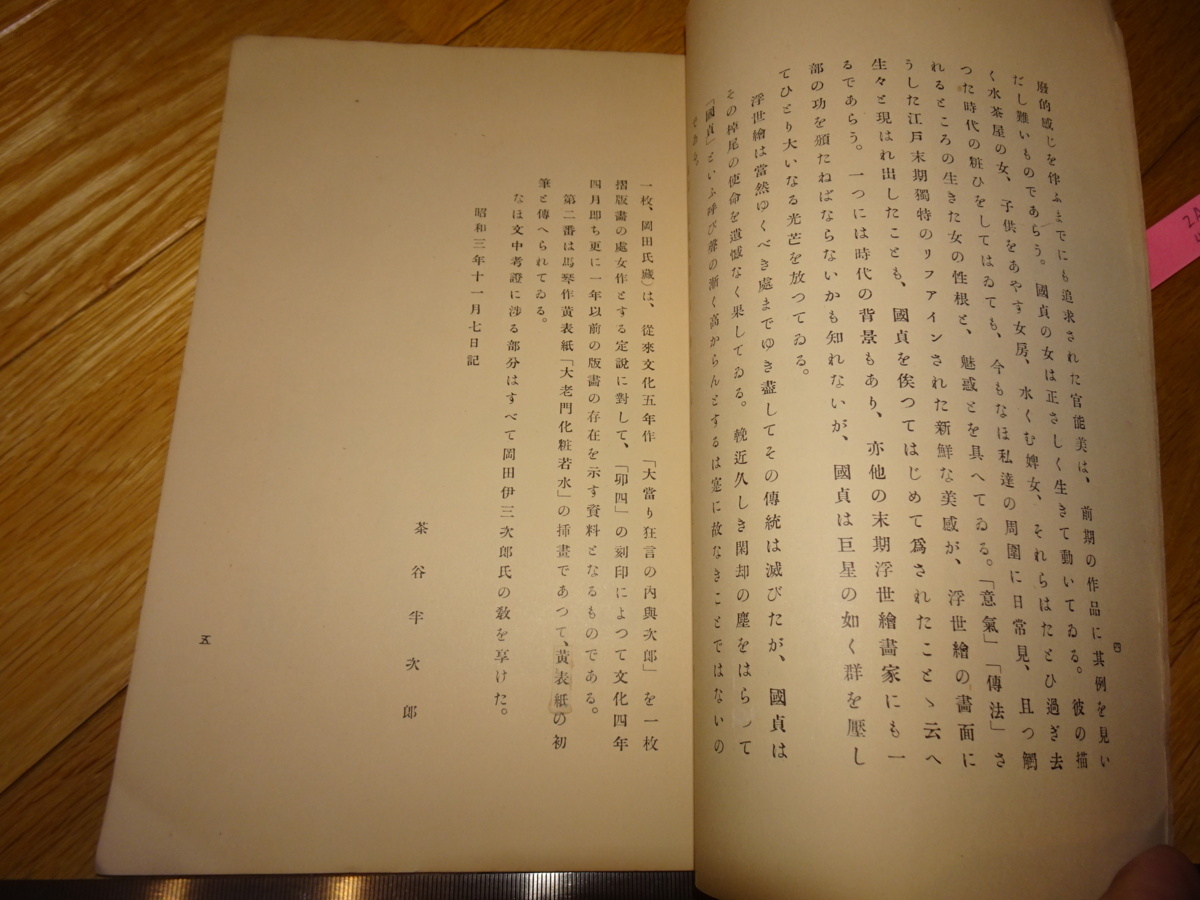 四
廢的感じを作ふまでにも追求された官能美は、前期の作品に其例を見い
だし難いものであらう。國貞の女は正さしく生きて動いてゐる。彼の描
く水茶屋の女、子供をあやす女房、水くむ婢女、それらはたとひ過ぎ去
つた時代の粧ひをしてはゐても、今もなほ私達の周圍に日常見、且つ觸
れるところの生きた女の性根と、魅惑とを具へてゐる。「意氣」「傳法」さ
うした江戸末期獨特のリファインされた新鮮な美感が、浮世繪の畫面に
生々と現はれ出したことも、國貞を俟つてはじめて爲されたことゝ云へ
るであらう。一つには時代の背景もあり、亦他の末期浮世繪畫家にも一
部の功を頒たねばならないかも知れないが、國貞は巨星の如く群を壓し
てひとり大いなる光芒を放つてゐる。
浮世繪は當然ゆくべき處までゆき盡してその傳統は滅びたが、國貞は
その掉尾の使命を遺憾なく果してゐる。輓近久しき閑却の塵をはらつて
「國貞」といふ呼び聲の漸く高からんとするは寔に故なきことではないの
である。
一枚、岡田氏藏)は、從來文化五年作「大當り狂言の内與次郎」を一枚
摺版畫の處女作とする定説に對して、「卯四」の刻印によつて文化四年
四月即ち更に一年以前の版畫の存在を示す資料となるものである。
第二番は馬琴作黄表紙「大老門化粧若水」の挿畫であつて、黄表紙の初
筆と傳へられてゐる。
なほ文中考證に渉る部分はすべて岡田伊三次郎氏の敎を享けた。
昭和三年十一月七日記
茶谷半次郎
五